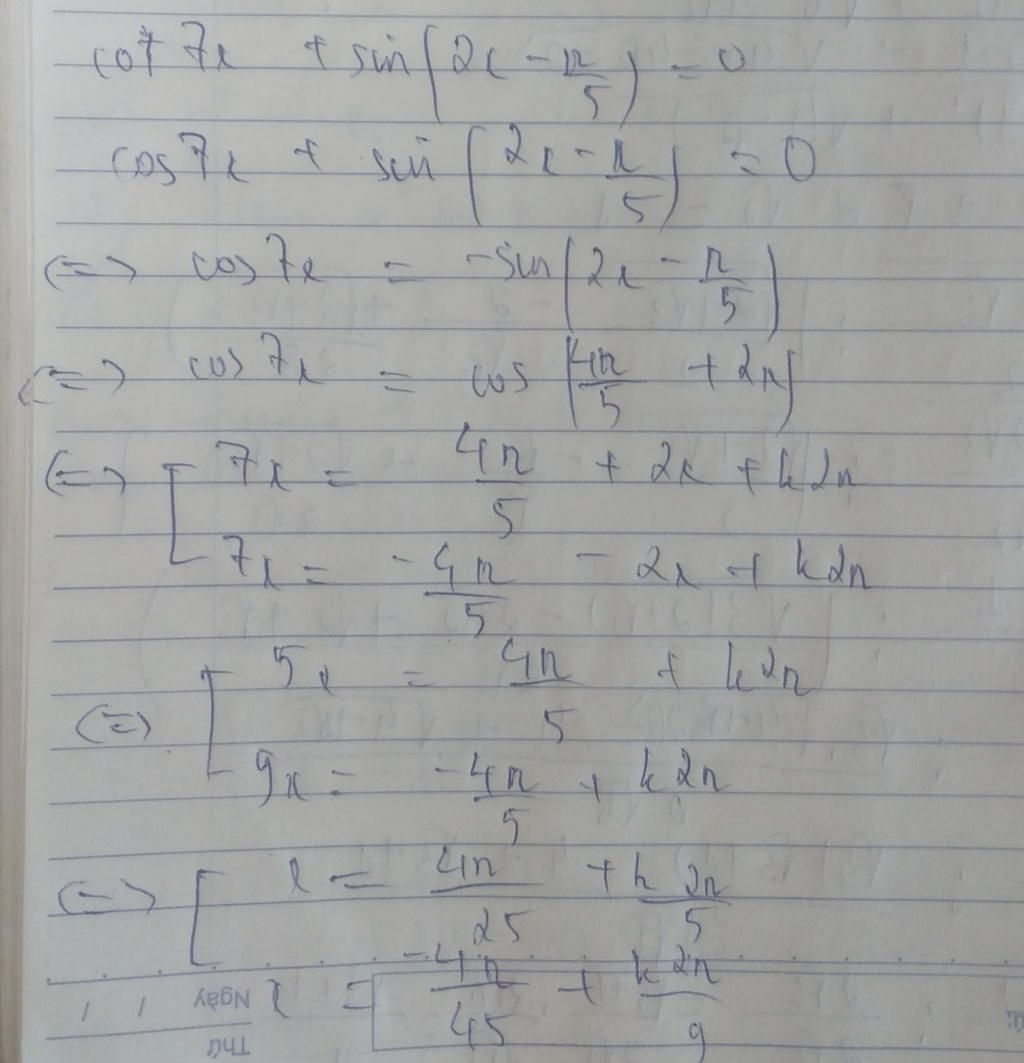 cot 7x + sin(2x - π/5) = 0
cos 7x + sin(2x - π/5) = 0
<=> cos 7x = -sin(2x - π/5)
<=> cos 7x = cos(4π/5 + 2x)
<=> [ 7x = 4π/5 + 2x + k2π
7x = -4π/5 - 2x + k2π
<=> [ 5x = 4π/5 + k2π
9x = -4π/5 + k2π
<=> [ x = 4π/25 + k2π/5
x = -4π/45 + k2π/9
Ngày / /
Thứ